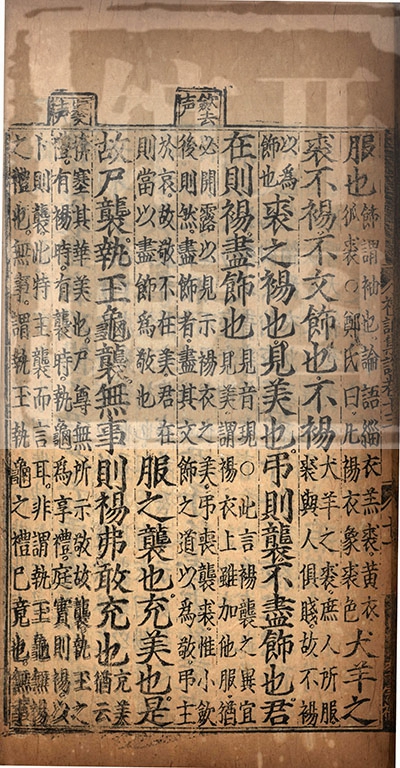 歛去声
声
服也飾謂袖也論語緇衣羔裘黃衣
狐裘○鄭氏曰凡裼衣象裘色犬羊之
裘不裼不文飾也不裼犬羊之裘庶人所服
裘與人俱賤故不裼
以為
飾也裘之裼也見美也弔則襲不盡飾也君
在則裼盡飾也見音現○此言裼襲之異宜
見美謂裼衣上雖加他服猶
必開露以見示裼衣之美弔喪襲裘惟小歛
後則然盡飾者盡其文飾之道以為敬弔主
於哀故敬不在美君在
則當以盡飾為敬也服之襲也充美也是
故尸襲執玉龜襲無事則裼弗敢充也充美
猶云
揜塞其華美也尸尊無所示敬故襲執玉之
禮有裼時有襲時執龜為享禮庭實則裼以
卜則襲此特主襲而言耳非謂執玉龜無裼
之禮也無事謂執玉執龜之禮已竟也